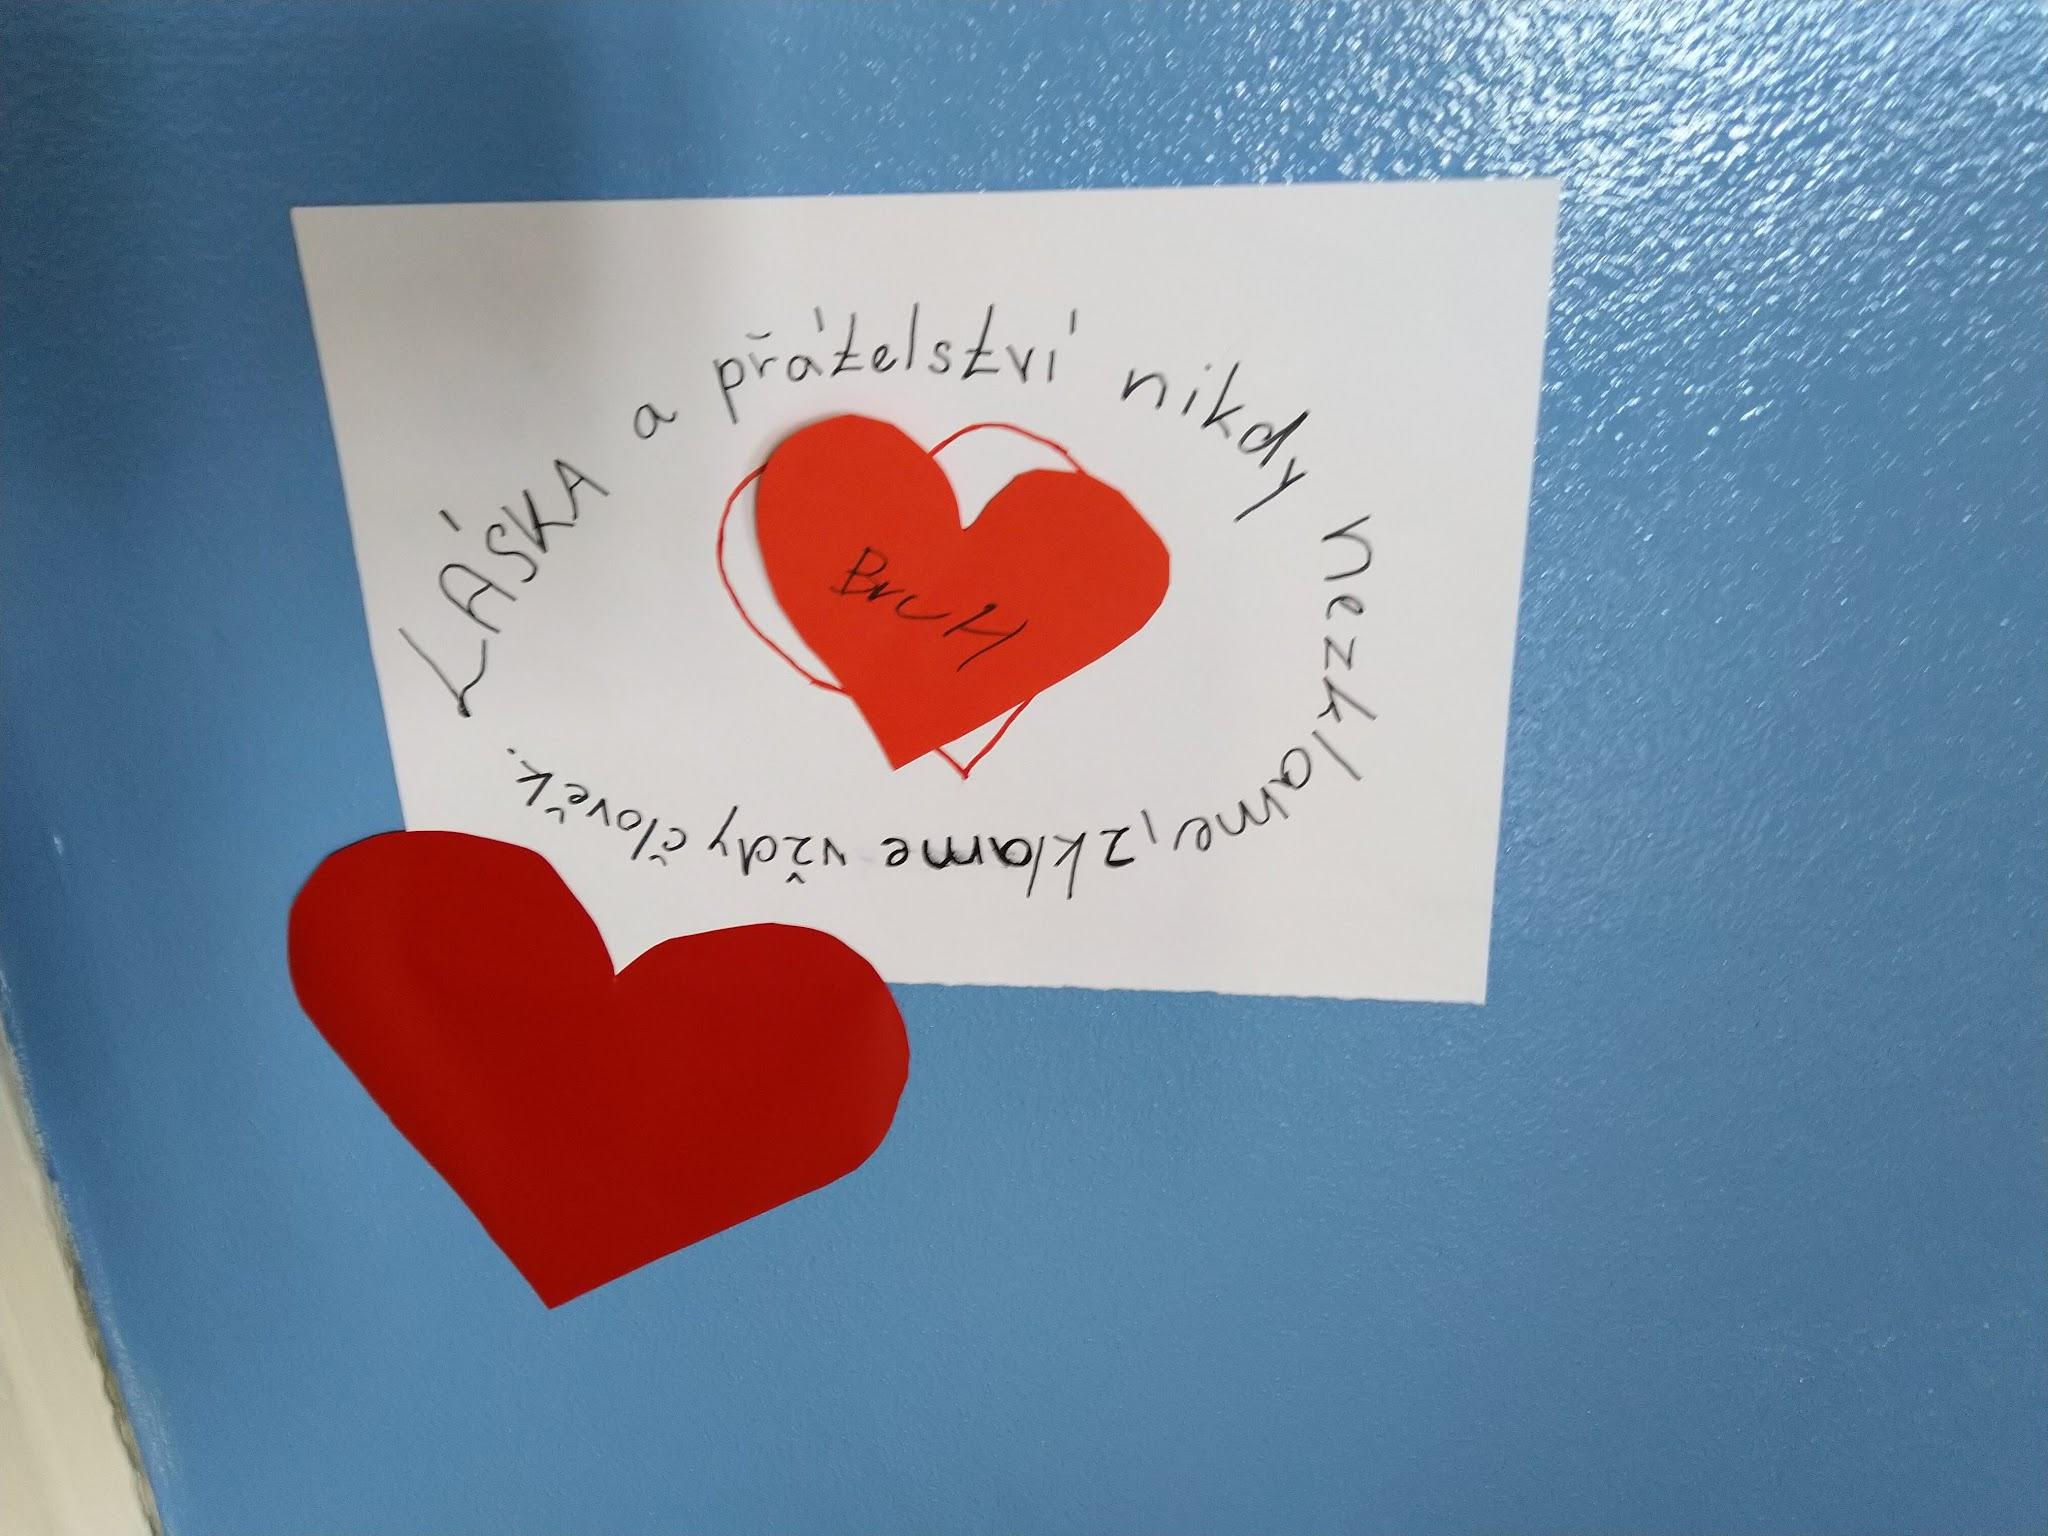 LÁSKA a přátelství nikdy nezklame, zklame vždy člověk.
BrUH